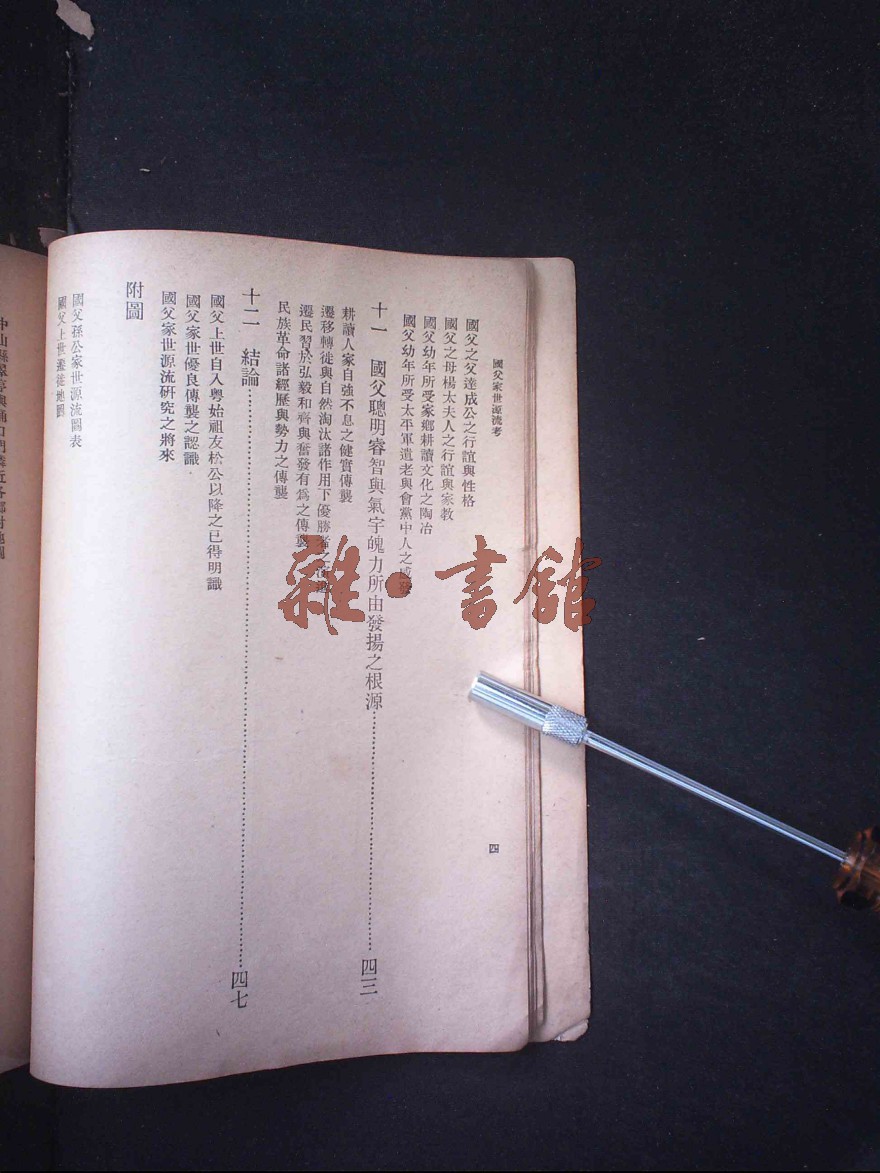 國父家世源流考
國父之父達成公之行誼與性格
國父之母楊太夫人之行誼與家教
國父幼年所受家鄉耕讀文化之陶冶
國父幼年所受太平軍遺老與會黨中人之感發
十一 國父聰明睿智與氣宇魄力所由發揚之根源……四三
耕讀人家自強不息之健實傳襲
遷移轉徙與自然淘汰諸作用下優勝者之
遷民習於弘毅和齊與奮發有為之傳襲
民族革命諸經歷與勢力之傳襲
十二 結論……四七
國父上世自入粵始祖友松公以降之已得明識
國父家世優良傳襲之認識
國父家世源流研究之將來
附圖
國父孫公家世源流圖表
國父上世遷徙地圖
四
雜·書館